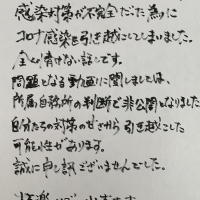 感染対策が不完全だった為に
コロナ感染を引き起こしてしまいました。
全く情けない話です。
問題となる動画に関しましては、
所属事務所の判断で非公開となりました
自分たちの対策の甘さから引き起こした
可能性があります。
誠に申し訳ございませんでした。